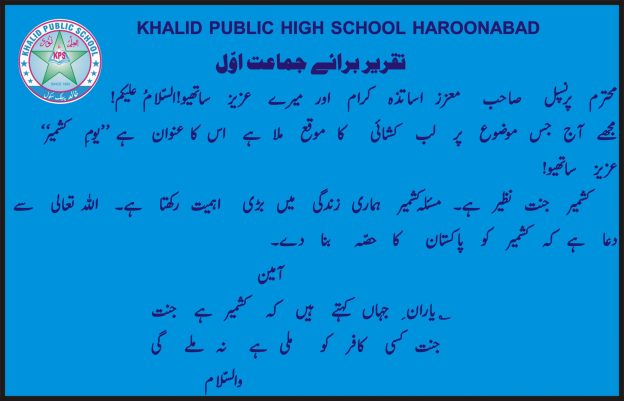 KHALID PUBLIC SCHOOL
KPS
خالد پبلک سکول
KHALID PUBLIC HIGH SCHOOL HAROONABAD
تقریر برائے جماعت اوّل
محترم پرنسپل صاحب معزز اساتذہ کرام اور میرے عزیز ساتھیو!السّلامُ علیکم!
مجھے آج جس موضوع پر لب کشائی کا موقع ملا ہے اس کا عنوان ہے ”یومِ کشمیر“
عزیز ساتھیو!
کشمیر جنت نظیر ہے۔ مسئلہ کشمیر ہماری زندگی میں بڑی اہمیت رکھتا ہے۔ اللہ تعالی سے
دعا ہے کہ کشمیر کو پاکستان کا حصّہ بنا دے۔
آمین
؎ یارانِ جہاں کہتے ہیں کہ کشمیر ہے جنت
جنت کسی کافر کو ملی ہے نہ ملے گی
والسّلام